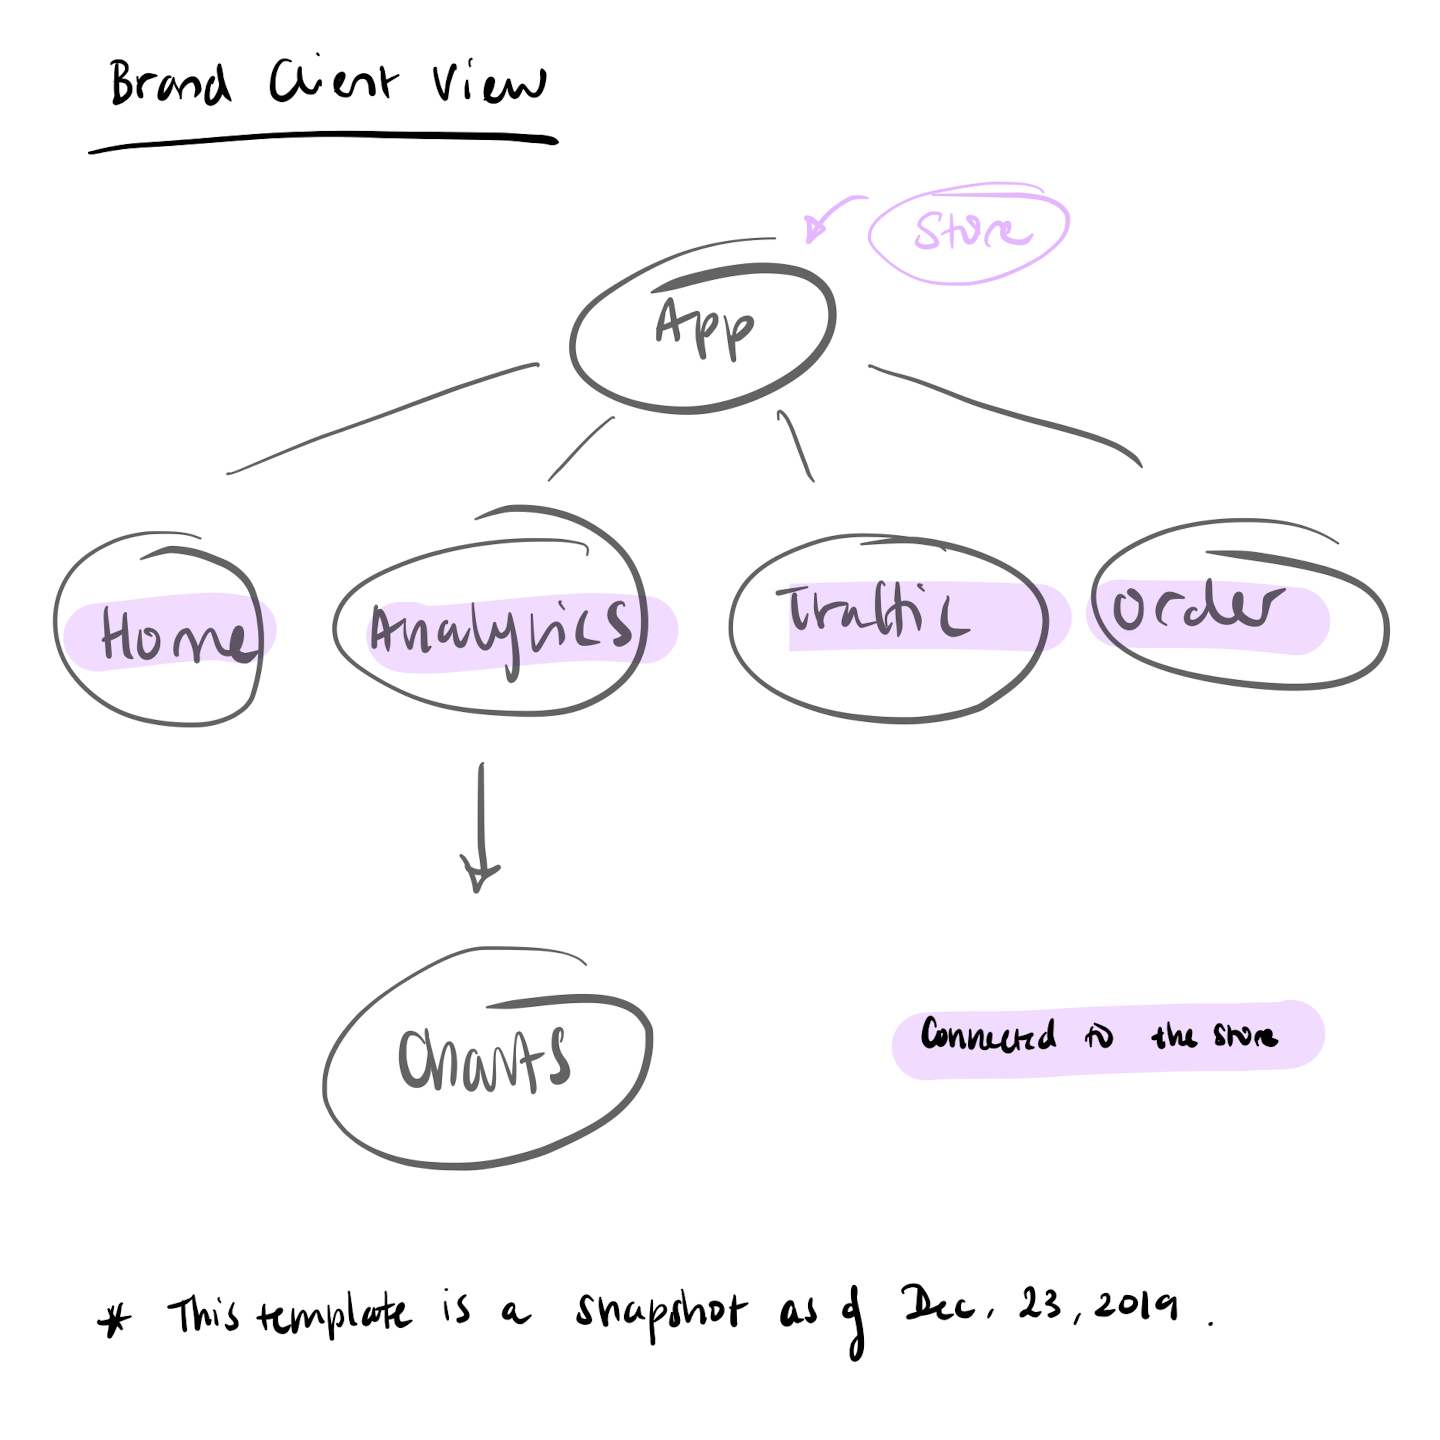 Brand Client View
Store
App
Home
Analytics
Traffic
Order
Charts
Connected to the store
* This template is a snapshot as of Dec. 23, 2019.